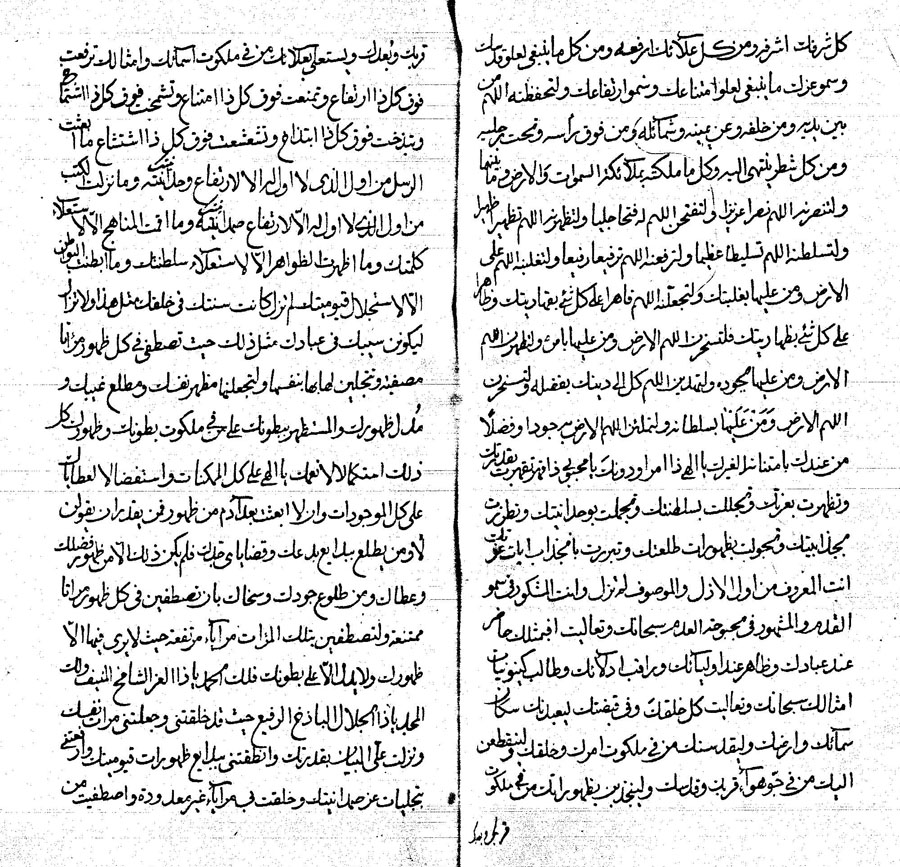 كل شرفات اشرفه ومن كل علائك ارفعه ومن كل ما ينبغى لعلو قدسك
وسمو عزك ما ينبغى لعلو امتناعك وسمو ارتفاعك ولتحفظنه اللهم من
بين يديه ومن خلفه وعن يمينه وشمائله ومن فوق رأسه وتحت جلسه
ومن كل شطر ينتهى اليه وكل ما ملكته بملائكة السموات والارض وما بينهما
ولتنصرنه اللهم نصرا عزيزا ولتفتحن اللهم له فتحا جليا ولتظهرنه اللهم تظهيرا
ولتسلطنه اللهم تسليطا عظيما ولترفعنه اللهم ترفيعا رفيعا ولتغلبنه اللهم على
الارض ومن عليها بغلبتك ولتجعلنه اللهم قاهرا على كل شئ بقهاريتك وظاهرا
على كل شئ بظهاريتك فلتسخرن اللهم الارض ومن عليها بامره ولتظهرن اللهم
الارض ومن عليها بجوده ولتهدين اللهم كل الى دينك بفضله ولتسخرن
اللهم الارض ومن عليها بسلطانه ولتملئن اللهم الارض به جودا وفضلا
من عندك بامتنانه الغير يا الهى ذا امراودونك يا محبوبى ذا قهر تقهرت بقدرتك
وتظهرت بعزتك وتجللت بسلطنتك وتجملت بوحدانيتك وتطرزت
بمجذابيتك وتحولت بظهورات طلعتك وتبررت بامجذاب ايات
انت المعروف من اول الاول والموصوف لم تزل وانت المشكور فى سمو
القدم والمشهود فى محبوحة العدم سبحانك وتعاليت افبمثلك حاضر
عند عبادك وظاهر عند اوليائك ومراقب ادلائك وطالب كينونيات
امثالك سبحانك وتعاليت كل خلقك وفى قبضتك ليعبدنك سكان
سمائك وارضك وليقدسنك من فى ملكوت امرك وخلقك ولينقطعن
اليك من فى هواء قربك وقدسك ولينجذبن بظهوراتك من فى ملكوت
قربك وبعدك
قربك وبعدك ويستعلى بعلائك من فى ملكوت اسمائك وامثالك ترفعت
فوق كل ذا ارتفاع وتمنعت فوق كل ذا امتناع وتشمخت فوق كل ذا اشتماخ
وتبذخت فوق كل ذا ابتذاخ وتشعشعت فوق كل ذا اشتشاع ما بعثت
الرسل من اول الذى لا اول له الا لارتفاع وحدانيته وما نزلت الكتب
من اول الذى لا اول له الا لارتفاع صمدانيته وما اقمت المناهج الا لاستعلاء
كلمتك وما اظهرت الظواهر الا لاستعلاء سلطنتك وما ابطنت البواطن
الا لاستجلال قيوميتك لم تزل كانت سنتك فى خلقك مثل هذا ولا تزال
ليكونن سبيلك فى عبادك مثل ذلك حيث تصطفى فى كل ظهور مرآتا
مصفية وتجلين لها بها بنفسها ولتجعلنها مظهر نفسك ومطلع غيبك و
مدل ظهورك والمستظهر ببطونك على من فى ملكوت بطونك وظهورك كل
ذلك استكمالا لانعمك يا الهى على كل الممكنات واستفضالا لعطائك
على كل الموجودات وان لا ابعث بعد آدم من ظهور فمن يقدر ان يقولن
لا ومن يطلع ببدايع بدعك وقضاياى قدرك فلم يكن ذلك الا من ظهور فضلك
وعطائك ومن طلوع جودك وسخائك بان تصطفين فى كل ظهور مرآتا
ممتنعة ولتصطفين بتلك المرآت مرآياء مرتفعة حيث لا يرى فيها الا
ظهورك ولا يدل الا على بطونك فلك الحمد يا ذا العز الشامخ المنيف ولك
الحمد يا ذا الجلال الباذخ الرفيع حيث قد خلقتنى وجعلتنى مرآت نفسك
ونزلت على البيان بقدرتك وانطقتنى ببدايع ظهورات قيوميتك وارفعتنى
بتجليات عز صمدانيتك وخلقت فى مرآياء غير معدودة واصطفيت من